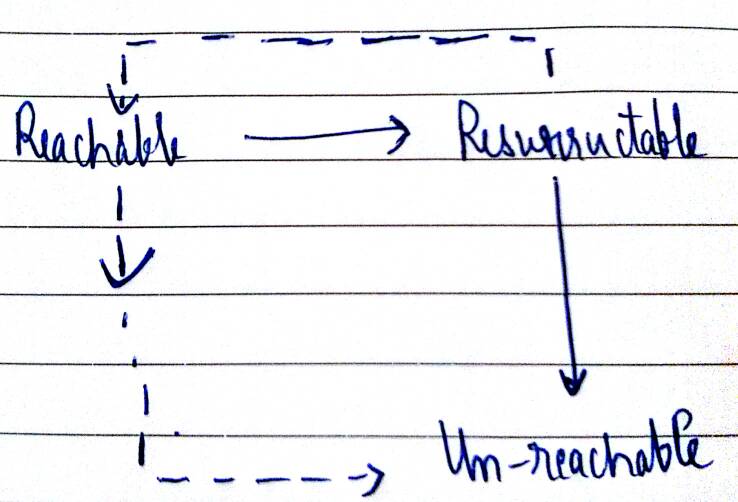 Reachable Resurructable
Un-reachable